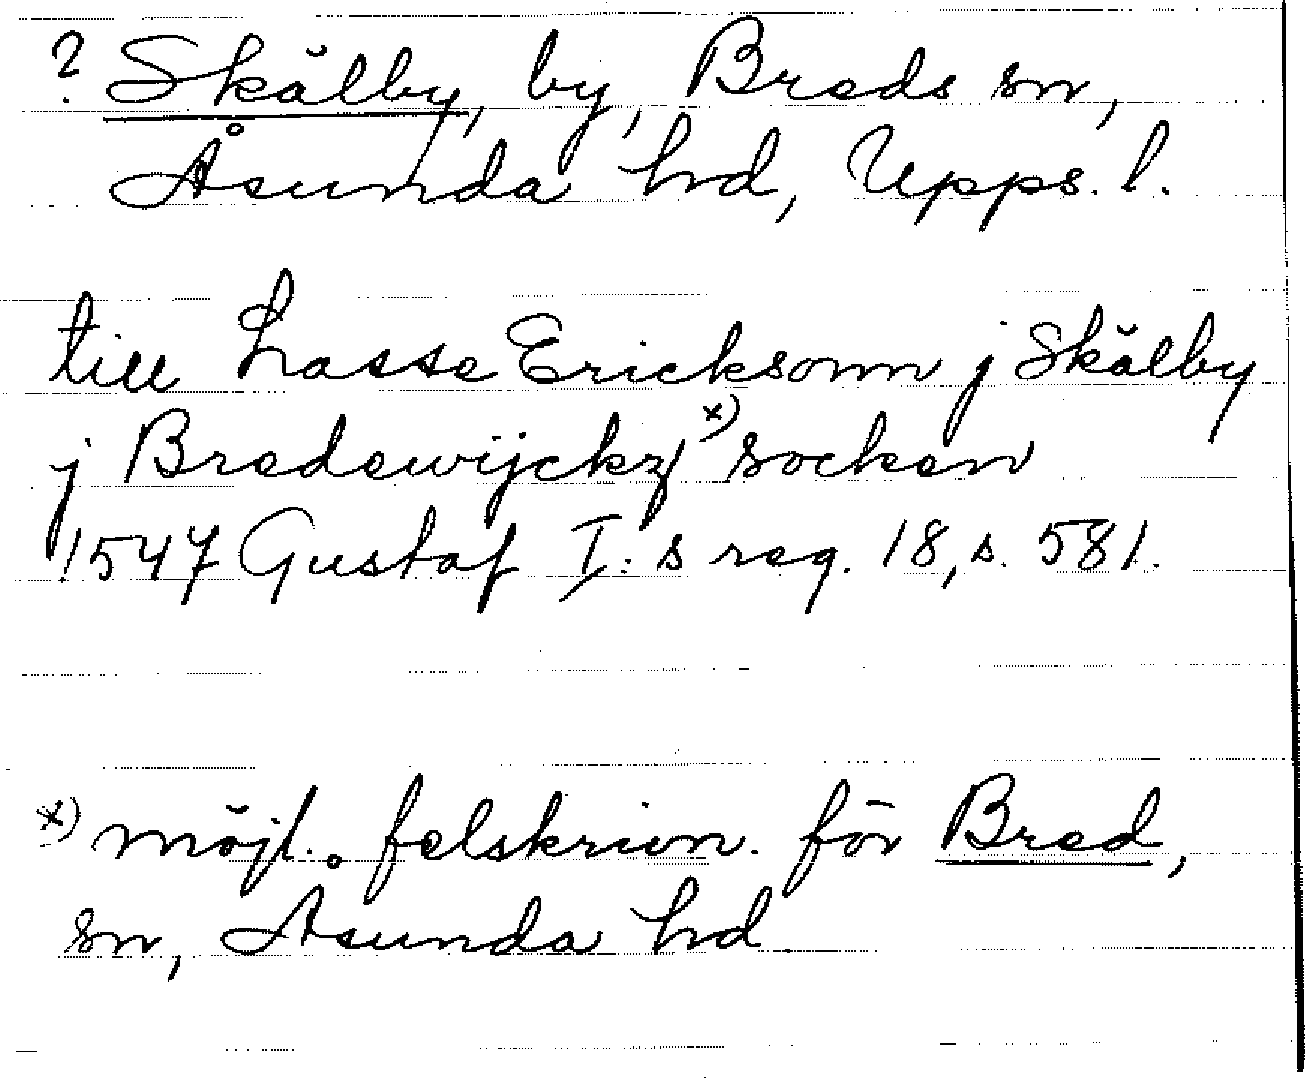 ? Skälby, by, Breds sn,
Åsunda hd, Upps. l.
till Lasse Ericksonn j Skälby
j Bredewijckz x) socken
1547 Gustaf I:s reg. 18, s. 581.
x) möjl. felskrivn. för Bred,
sn, Åsunda hd.